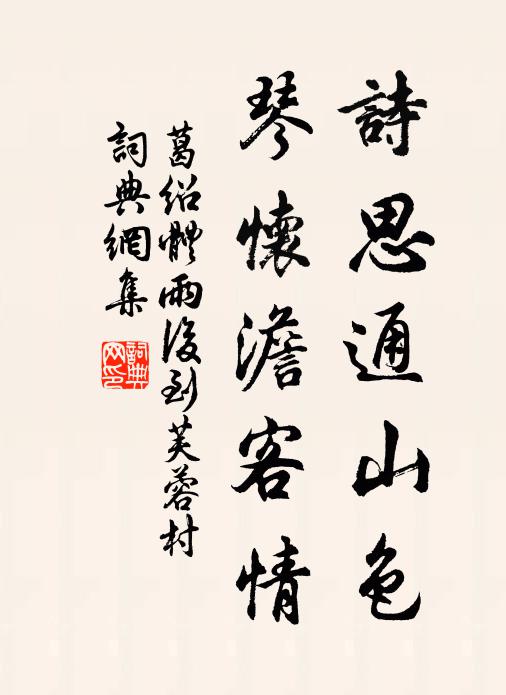 詩思通山色
琴懷澹客情
葛紹體雨後到芙蓉村
詞典網集
詞典網印